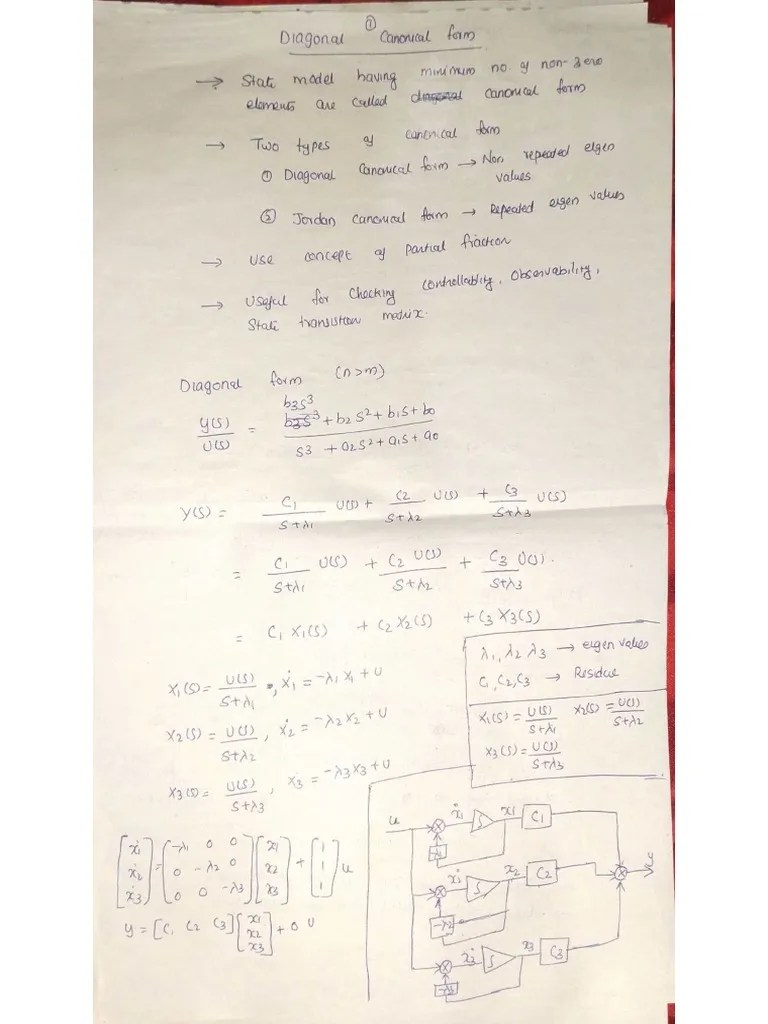 ①
Diagonal Canonical form
→ State model having minimum no of non-zero
elements are called diagonal canonical form
→ Two types of canonical form
① Diagonal Canonical form → Non repeated eigen
values
② Jordan canonical form → Repeated eigen values
→ Use concept of partial fraction
→ Useful for checking controllablity, observability,
State transistion matrix.
Diagonal form (n>m)
b3s^3
Y(s)/U(s) = b3s^3 + b2s^2 + b1s + b0 / s3 + a2s^2 + a1s + a0
Y(s) = C1/(s+λ1) U(s) + C2/(s+λ2) U(s) + C3/(s+λ3) U(s)
= C1/(s+λ1) U(s) + C2 U(s)/(s+λ2) + C3 U(s)/(s+λ3).
= C1 X1(s) + C2 X2(s) + C3 X3(s)
λ1, λ2 λ3 → eigen values
C1, C2, C3 → Residue
X1(s) = U(s)/(s+λ1) X2(s) = U(s)/(s+λ2)
X3(s) = U(s)/(s+λ3)
X1(s) = U(s)/(s+λ1), ẋ1 = -λ1 x1 + U
X2(s) = U(s)/(s+λ2), ẋ2 = -λ2 x2 + U
X3(s) = U(s)/(s+λ3), ẋ3 = -λ3 x3 + U
[ẋ1] = [-λ1 0 0] [x1] + [1]
[ẋ2] [0 -λ2 0] [x2] [1] u
[ẋ3] [0 0 -λ3] [x3] [1]
y = [C1 C2 C3] [x1 x2 x3] + 0 U
u ẋ1 ∫ x1 C1
-λ1
ẋ2 ∫ x2 C2 y
-λ2
ẋ3 ∫ x3 C3
-λ3